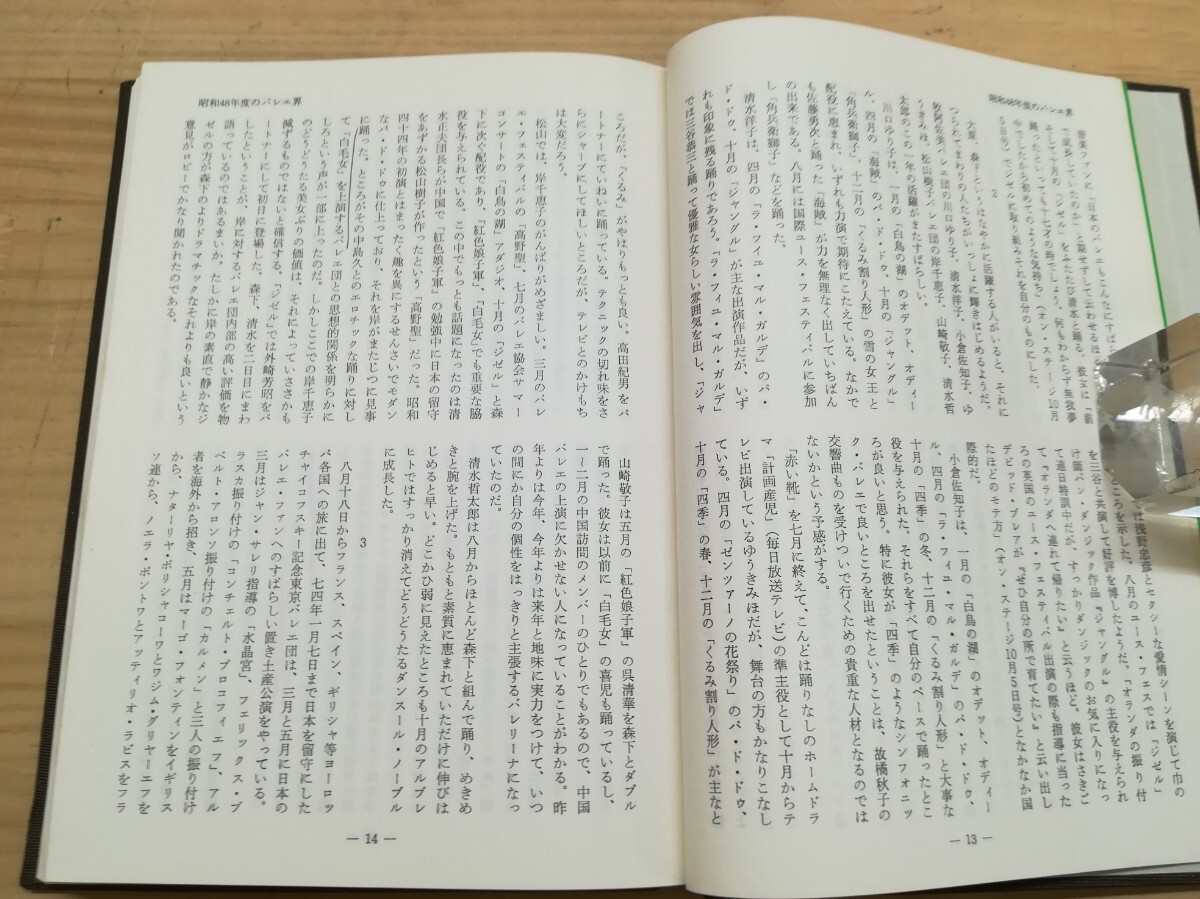 昭和48年度のバレエ界
音楽ファンに『日本のバレエもこんなにすばらし
で成長していたのか』と期せずして云わせるほ
そして十月の「ジゼル」をふたたび清水と踊る。彼女は「前
踊ったといっても十七才の時でしょう。何もわからず無我夢
中でしたから初めてのような気持ち」（オン・ステージ10月
5日号）で「ジゼル」に取り組みそれを自分のものにした。
2
大原、森下というはなやかに活躍する人がいると、それに
つられてまわりの人たちがいっしょに輝きはじめるようだ。
牧阿佐美バレエ団の川口ゆり子、清水洋子、小倉佐知子、ゆ
うきみほ、松山樹子バレエ団の岸千恵子、山崎敬子、清水哲
太郎のこの一年の活躍がまたすばらしい。
川口ゆり子は、一月の「白鳥の湖」のオデット、オディー
ル、四月の「海賊」のパ・ド・ドゥ、十月の「ジャングル」
「角兵衛獅子」、十二月の「くるみ割り人形」の雪の女王と
配役に恵まれ、いずれも力演で期待にこたえている。なかで
も佐藤勇次と踊った「海賊」が力を無理なく出していちばん
の出来である。八月には国際ユース・フェスティバルに参加
し「角兵衛獅子」などを踊った。
清水洋子は、四月の「ラ・フィユ・マル・ガルデ」のパ・
ド・ドゥ、十月の「ジャングル」が主な出演作品だが、いず
れも印象に残る踊りであろう。「ラ・フィユ・マル・ガルデ」
では三谷恭三と踊って優雅な女らしい雰囲気を出し、「ジャ
では浅野忠彦とセクシーな愛情シーンを演じて巾の
ところを示した。八月のユース・フェスでは「ジゼル」
を三谷と共演して好評を博したようだ。「オランダの振り付
け師バン・ダンジック作品『ジャングル』の主役を与えられ
て連日特訓中だが、すっかりダンジックのお気に入りになっ
て『オランダへ連れて帰りたい』と云うほど。彼女はさきご
ろの英国のユース・フェスティバル出演の際も指導に当った
デビッド・ブレアが、『ぜひ自分の所で育てたい』と云い出し
たほどのモテ方」（オン・ステージ10月5日号）となかなか国
際的だ。
小倉佐知子は、一月の「白鳥の湖」のオデット、オディー
ル、四月の「ラ・フィユ・マル・ガルデ」のパ・ド・ドゥ、
十月の「四季」の冬、十二月の「くるみ割り人形」と大事な
役を与えられた。それらをすべて自分のペースで踊ったとこ
ろが良いと思う。特に彼女が「四季」のようなシンフォニッ
ク・バレエで良いところを出せたということは、故橘秋子の
交響曲ものを受けついで行くための貴重な人材となるのでは
ないかという予感がする。
「赤い靴」を七月に終えて、こんどは踊りなしのホームドラ
マ「計画産児」（毎日放送テレビ）の準主役として十月からテ
レビ出演しているゆうきみほだが、舞台の方もかなりこなし
ている。四月の「ゼンツァーノの花祭り」のパ・ド・ドゥ、
十月の「四季」の春、十二月の「くるみ割り人形」が主なと
— 13 —
昭和48年度のバレエ界
ころだが、「くるみ」がやはりもっとも良い。高田紀男をパ
ートナーにていねいに踊っている。テクニックの切れ味をさ
らにシャープにしてほしいところだが、テレビとのかけもち
は大変だろう。
松山では、岸千恵子のがんばりがめざましい。三月のバレ
エ・フェスティバルの「高野聖」、七月のバレエ協会サマー
コンサートの「白鳥の湖」アダジオ、十月の「ジゼル」と森
下に次ぐ配役であり、「紅色娘子軍」、「白毛女」でも重要な脇
役を与えられている。この中でもっとも話題になったのは清
水正夫団長らが中国で「紅色娘子軍」の勉強中に日本の留守
をあずかる松山樹子が作ったという「高野聖」だった。昭和
四十四年の初演とはまったく趣を異にするせんさいでモダン
なパ・ド・ドゥに仕上っており、それを岸がまたじつに見事
に踊った。ところがその中島久とのエロチックな踊りに対し
て「白毛女」を上演するバレエ団との思想的関係を明らかに
しろという声が一部に上ったのだ。しかしここでの岸千恵子
のどうどうたる美女ぶりの価値は、それによっていささかも
減ずるものではないと確信する。「ジゼル」では外崎芳昭をパ
ートナーにして初日に登場した。森下、清水を二日目にまわ
したということが、岸に対するバレエ団内部の高い評価を物
語っているのではあるまいか。たしかに岸の素直で静かなジ
ゼルの方が森下のよりドラマチックなそれよりも良いという
意見がロビーでかなり聞かれたのである。
山崎敬子は五月の「紅色娘子軍」の呉清華を森下とダブル
で踊った。彼女は以前に「白毛女」の喜児も踊っているし、
一～二月の中国訪問のメンバーのひとりでもあるので、中国
バレエの上演に欠かせない人になっていることがわかる。昨
年よりは今年、今年よりは来年と地味に実力をつけて、いつ
の間にか自分の個性をはっきりと主張するバレリーナになっ
ていたのだ。
清水哲太郎は八月からほとんど森下と組んで踊り、めきめ
きと腕を上げた。もともと素質に恵まれていただけに伸びは
じめると早い。どこかひ弱に見えたところも十月のアルブレ
ヒトではすっかり消えてどうどうたるダンスール・ノーブル
に成長した。
3
八月十八日からフランス、スペイン、ギリシャ等ヨーロッ
パ各国への旅に出て、七四年一月七日まで日本を留守にした
チャイコフスキー記念東京バレエ団は、三月と五月に日本の
バレエ・ファンへのすばらしい置き土産公演をやっている。
三月はジャン・サレリ指導の「水晶宮」、フェリックス・ブ
ラスカ振り付けの「コンチェルト・プロコフィエフ」、アル
ベルト・アロンソ振り付けの「カルメン」と三人の振り付け
者を海外から招き、五月はマーゴ・フォンテインをイギリス
から、ナターリヤ・ボリシャコーワとワジム・グリャーエフを
ソ連から、ノエラ・ポントワとアッティリオ・ラビスをフラ
— 14 —